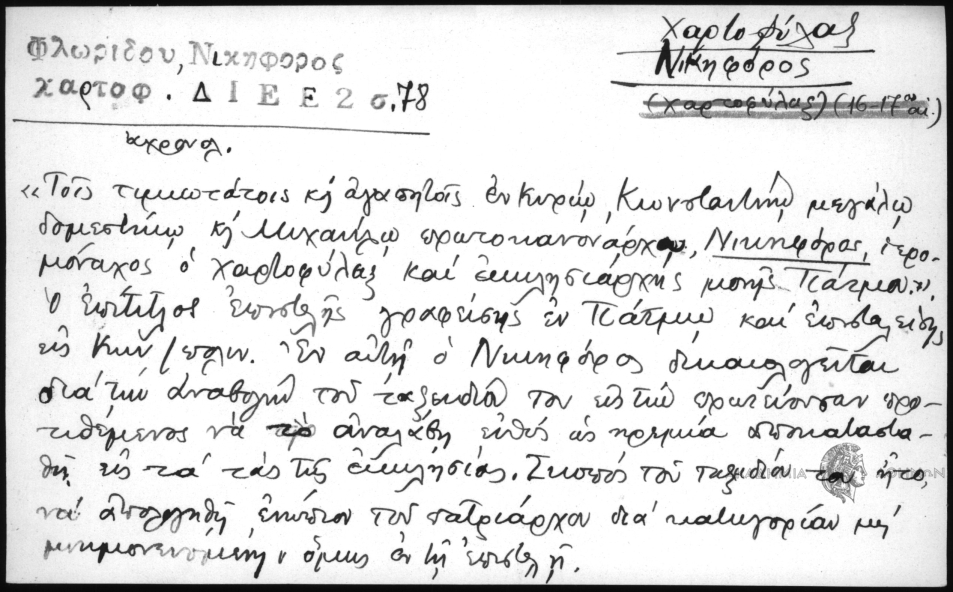 Φλωρίδου, Νικηφορος
χαρτοφ. Δ Ι Ε Ε 2 σ.78
Χαρτοφύλαξ
Νικηφόρος
(χαρτοφύλαξ) (16-17ου αἰ.)
ἀχρονολ.
«Τοῖς τιμιωτάτοις κὴ ἀγαπητοῖς ἐν Κυρίῳ, Κωνσταντίνῳ μεγάλῳ
δομεστίκῳ κὴ Μιχαήλῳ πρωτοκανονάρχῳ, Νικηφόρος, ἱερο-
μόναχος ὁ χαρτοφύλαξ καὶ ἐκκλησιάρχης μονῆς Πάτμου».
Ὁ ἐπίτιτλος ἐπιστολῆς γραφείσης ἐν Πάτμῳ καὶ ἐπισταλείσης
εἰς Κων/πολιν. Ἐν αὐτῇ ὁ Νικηφόρος δικαιολογεῖται
διὰ τὴν ἀναβολὴν τοῦ ταξειδίου του εἰς τὴν πρωτεύουσαν προ-
τιθέμενος νὰ τὸ ἀναλάβῃ εὐθὺς ὡς ἠρεμία ἀποκαταστα-
θῇ εἰς τὰ τῆς ἐκκλησίας. Σκοπὸς τοῦ ταξιδίου του ἦτο,
νὰ ἀπολογηθῇ ἐνώπιον τοῦ πατριάρχου διὰ κατηγορίαν μὴ
μνημονευομένην ὅμως ἐν τῇ ἐπιστολῇ.